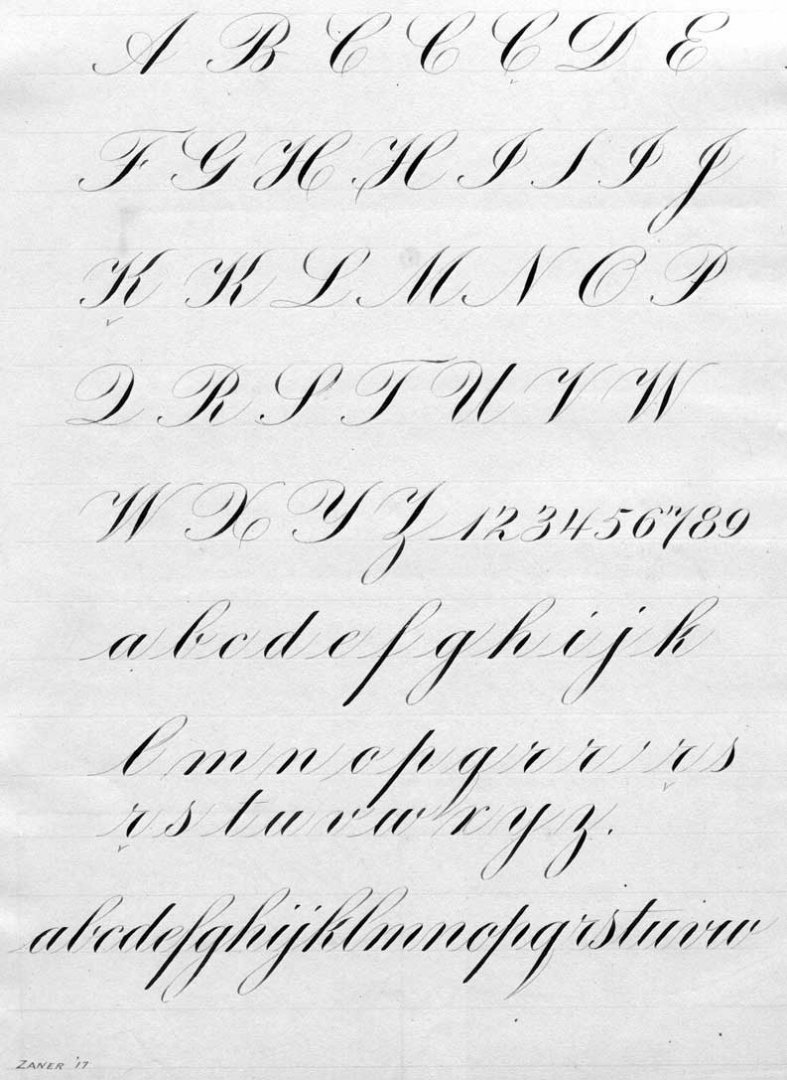 A B C C C D E
F G H H I I I J
K K L M N O P
Q R S T U V W
W X Y Z 123456789
a b c d e f g h i j k
l m n o p q r r r s
r s t u v w x y z.
abcdefghijklmnopqrstuvw
ZANER '17